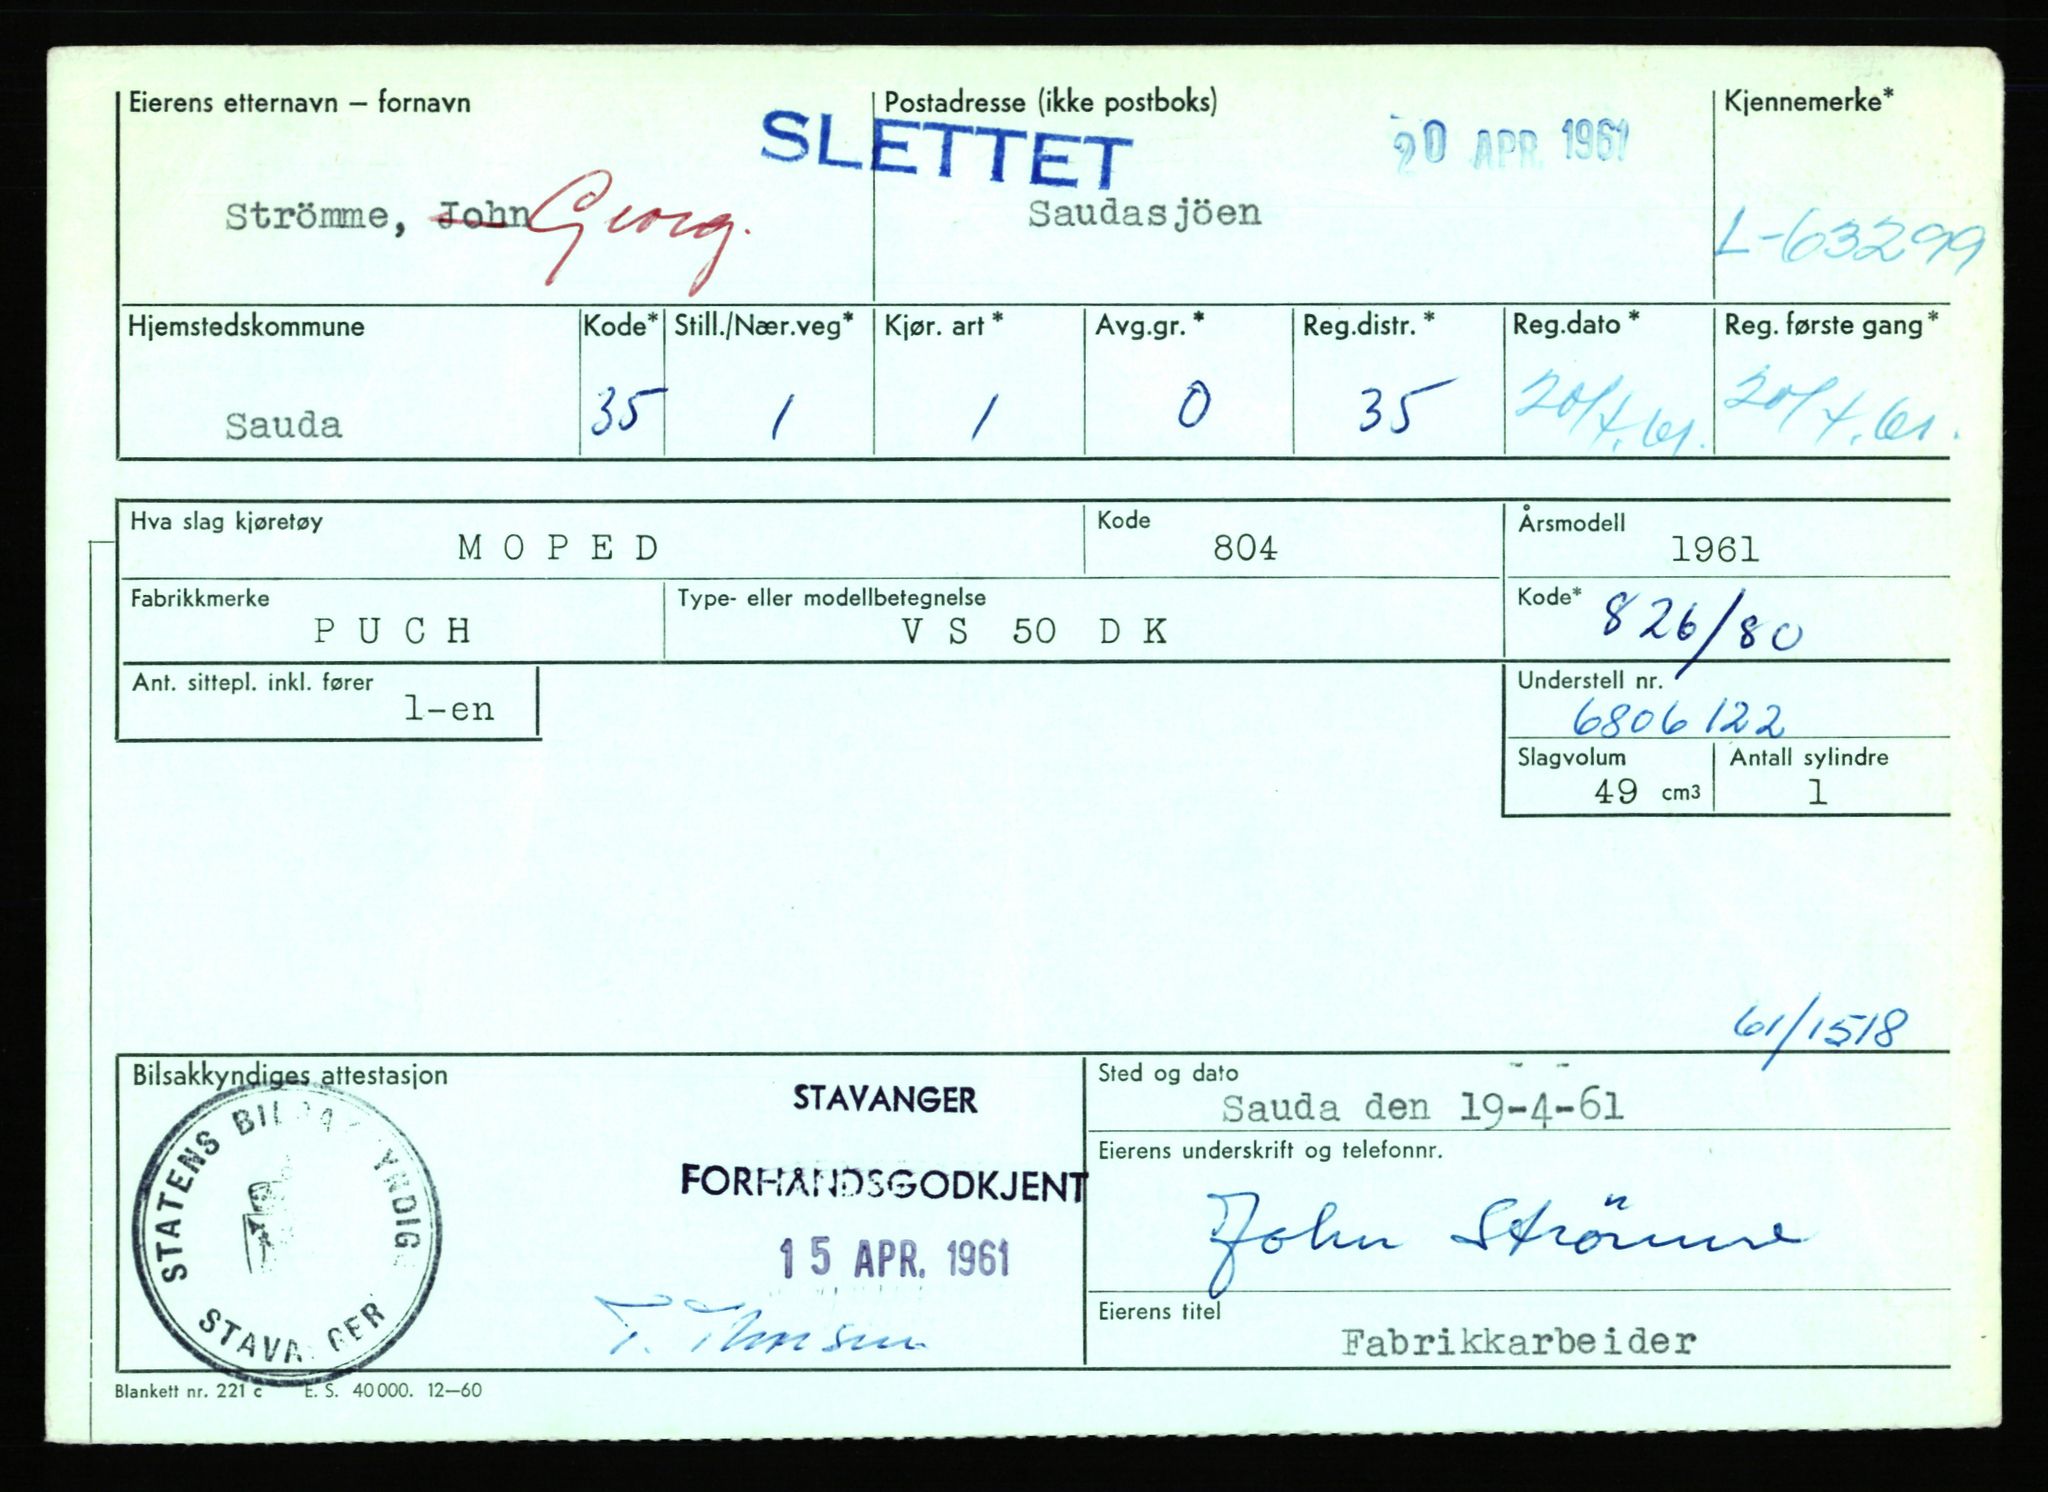 Eierens etternavn – fornavn
Postadresse (ikke postboks)
Kjennemerke*
SLETTET
20 APR. 1961
Strömme, John Georg.
Saudasjöen
L-63299
Hjemstedskommune
Kode*
Still./Nær.veg*
Kjør. art *
Avg.gr. *
Reg.distr. *
Reg.dato *
Reg. første gang*
Sauda
35
1
1
0
35
20/4.61.
20/4.61.
Hva slag kjøretøy
MOPED
Kode
804
Årsmodell
1961
Fabrikkmerke
PUCH
Type- eller modellbetegnelse
VS 50 DK
Kode*
826/80
Ant. sittepl. inkl. fører
1-en
Understell nr.
6806122
Slagvolum
49 cm3
Antall sylindre
1
61/1518
Bilsakkyndiges attestasjon
STATENS BILSAKKYNDIGE
STAVANGER
STAVANGER
FORHANDSGODKJENT
15 APR. 1961
Sted og dato
Sauda den 19-4-61
Eierens underskrift og telefonnr.
John Strömme
Eierens titel
Fabrikkarbeider
Blankett nr. 221 c E. S. 40000. 12–60